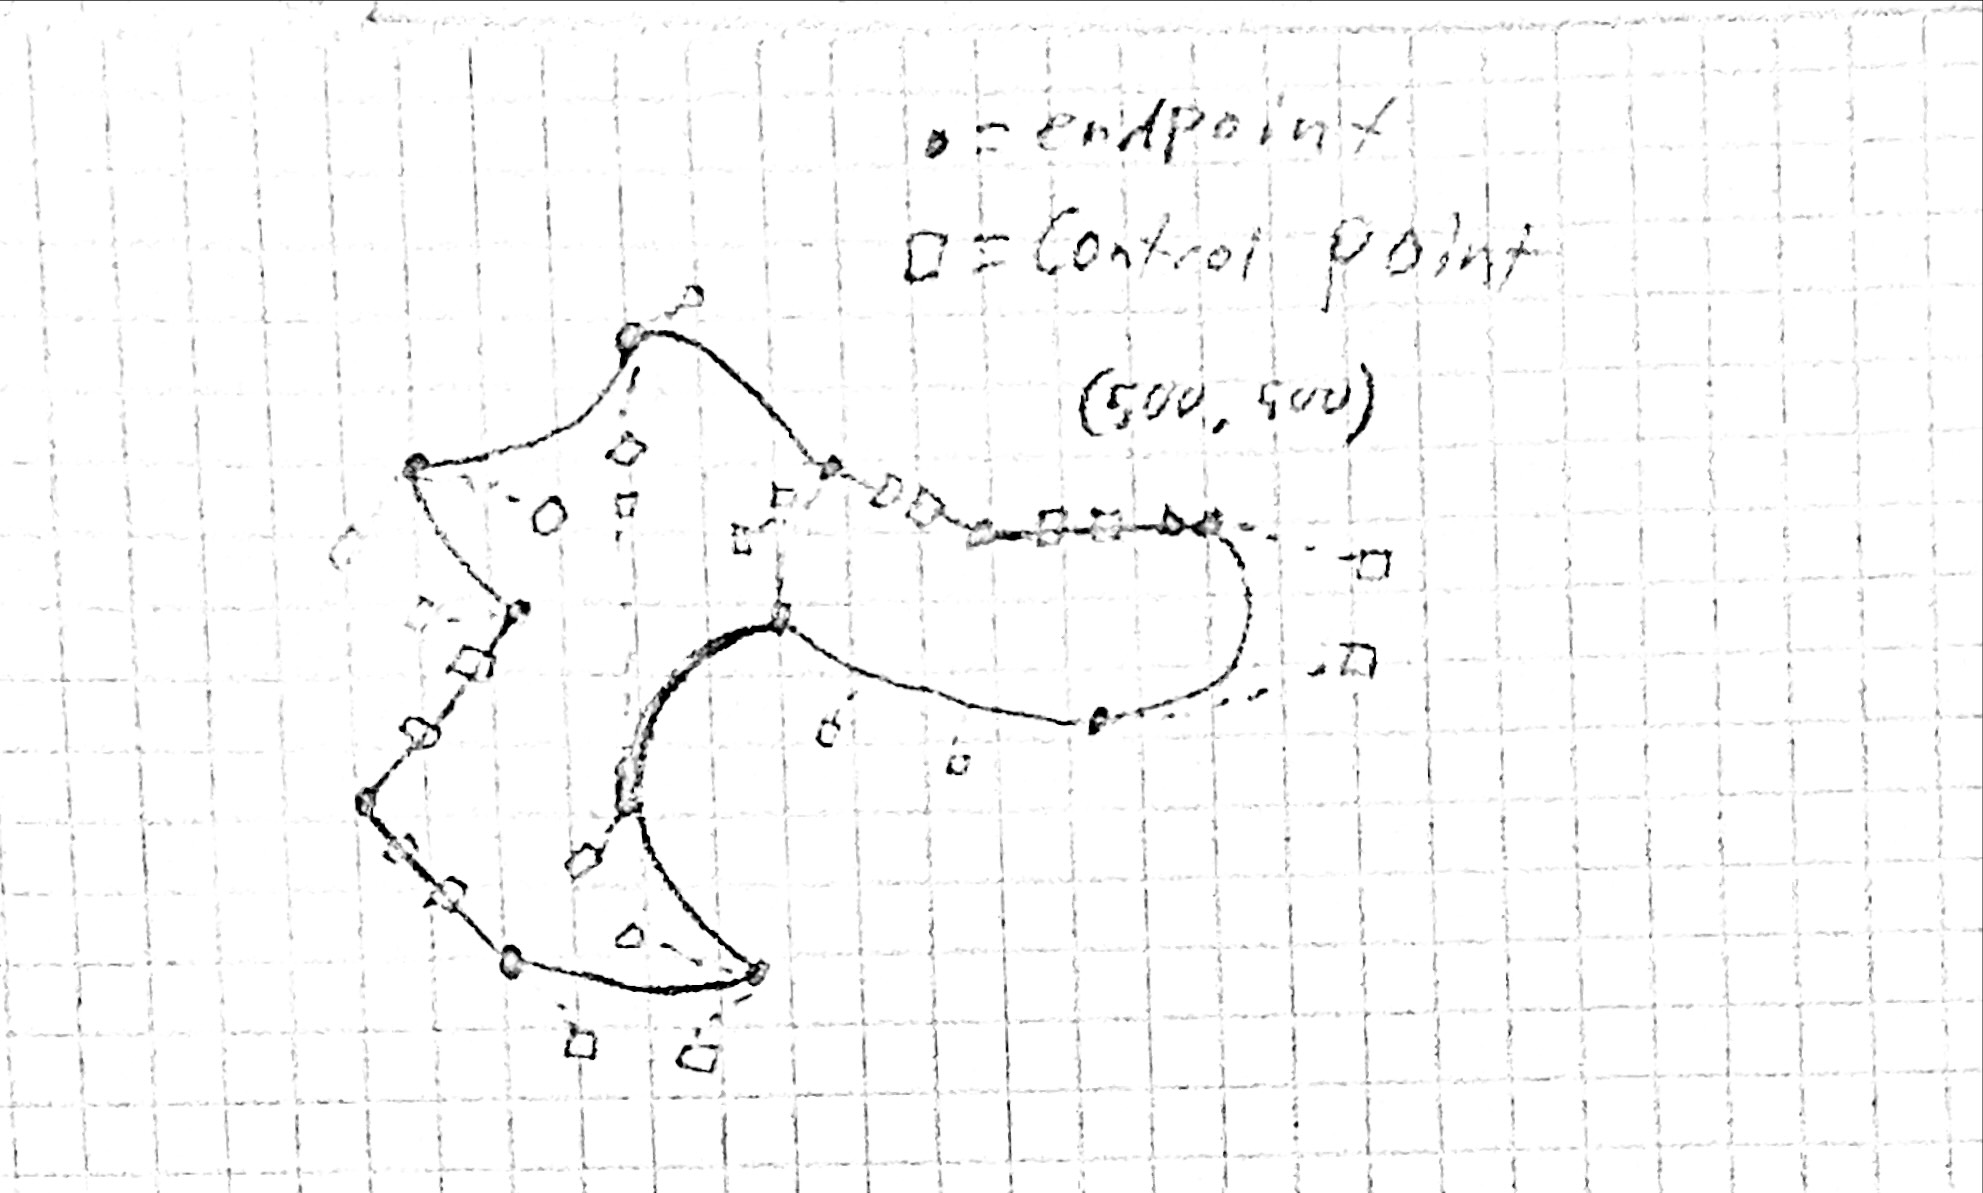 • = endpoint
□ = Control point
(500, 500)